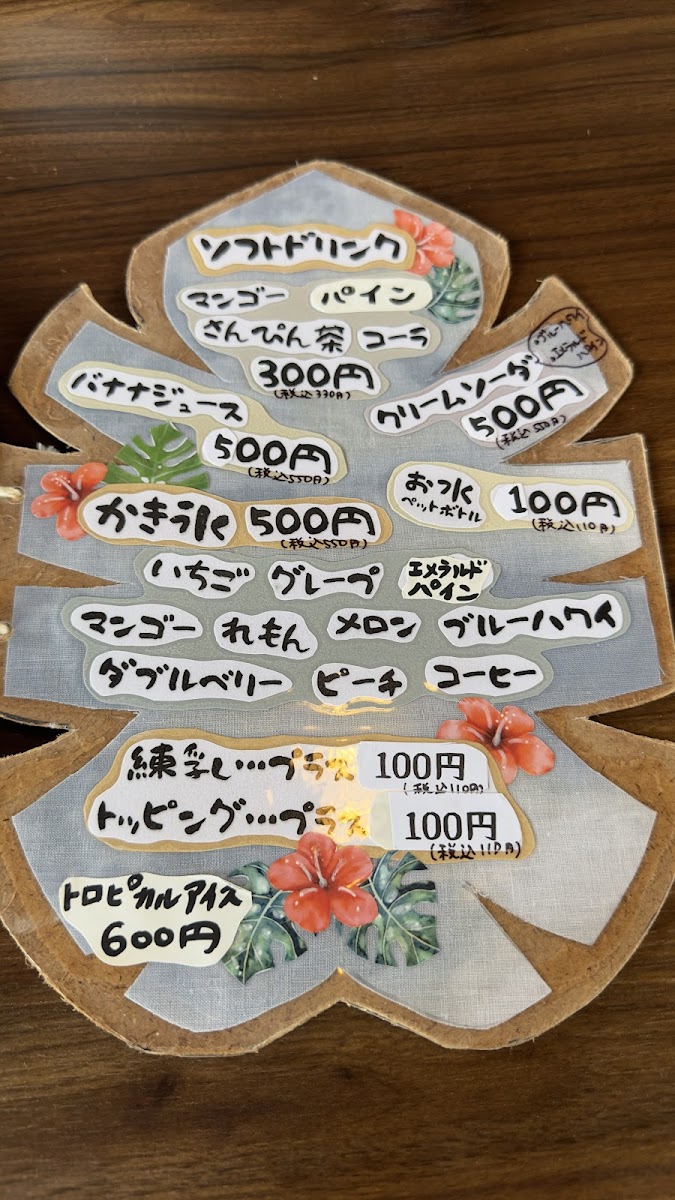 ソフトドリンク
マンゴー パイン
さんぴん茶 コーラ
300円
(税込330円)
バナナジュース
500円
(税込550円)
クリームソーダ
ブルーハワイ
エメラルド
パイン
500円
(税込550円)
おっ水
ペットボトル
100円
(税込110円)
かき氷 500円
(税込550円)
いちご グレープ エメラルド
パイン
マンゴー れもん メロン ブルーハワイ
ダブルベリー ピーチ コーヒー
練乳し…プラス 100円
(税込110円)
トッピング…プラス 100円
(税込110円)
トロピカルアイス
600円